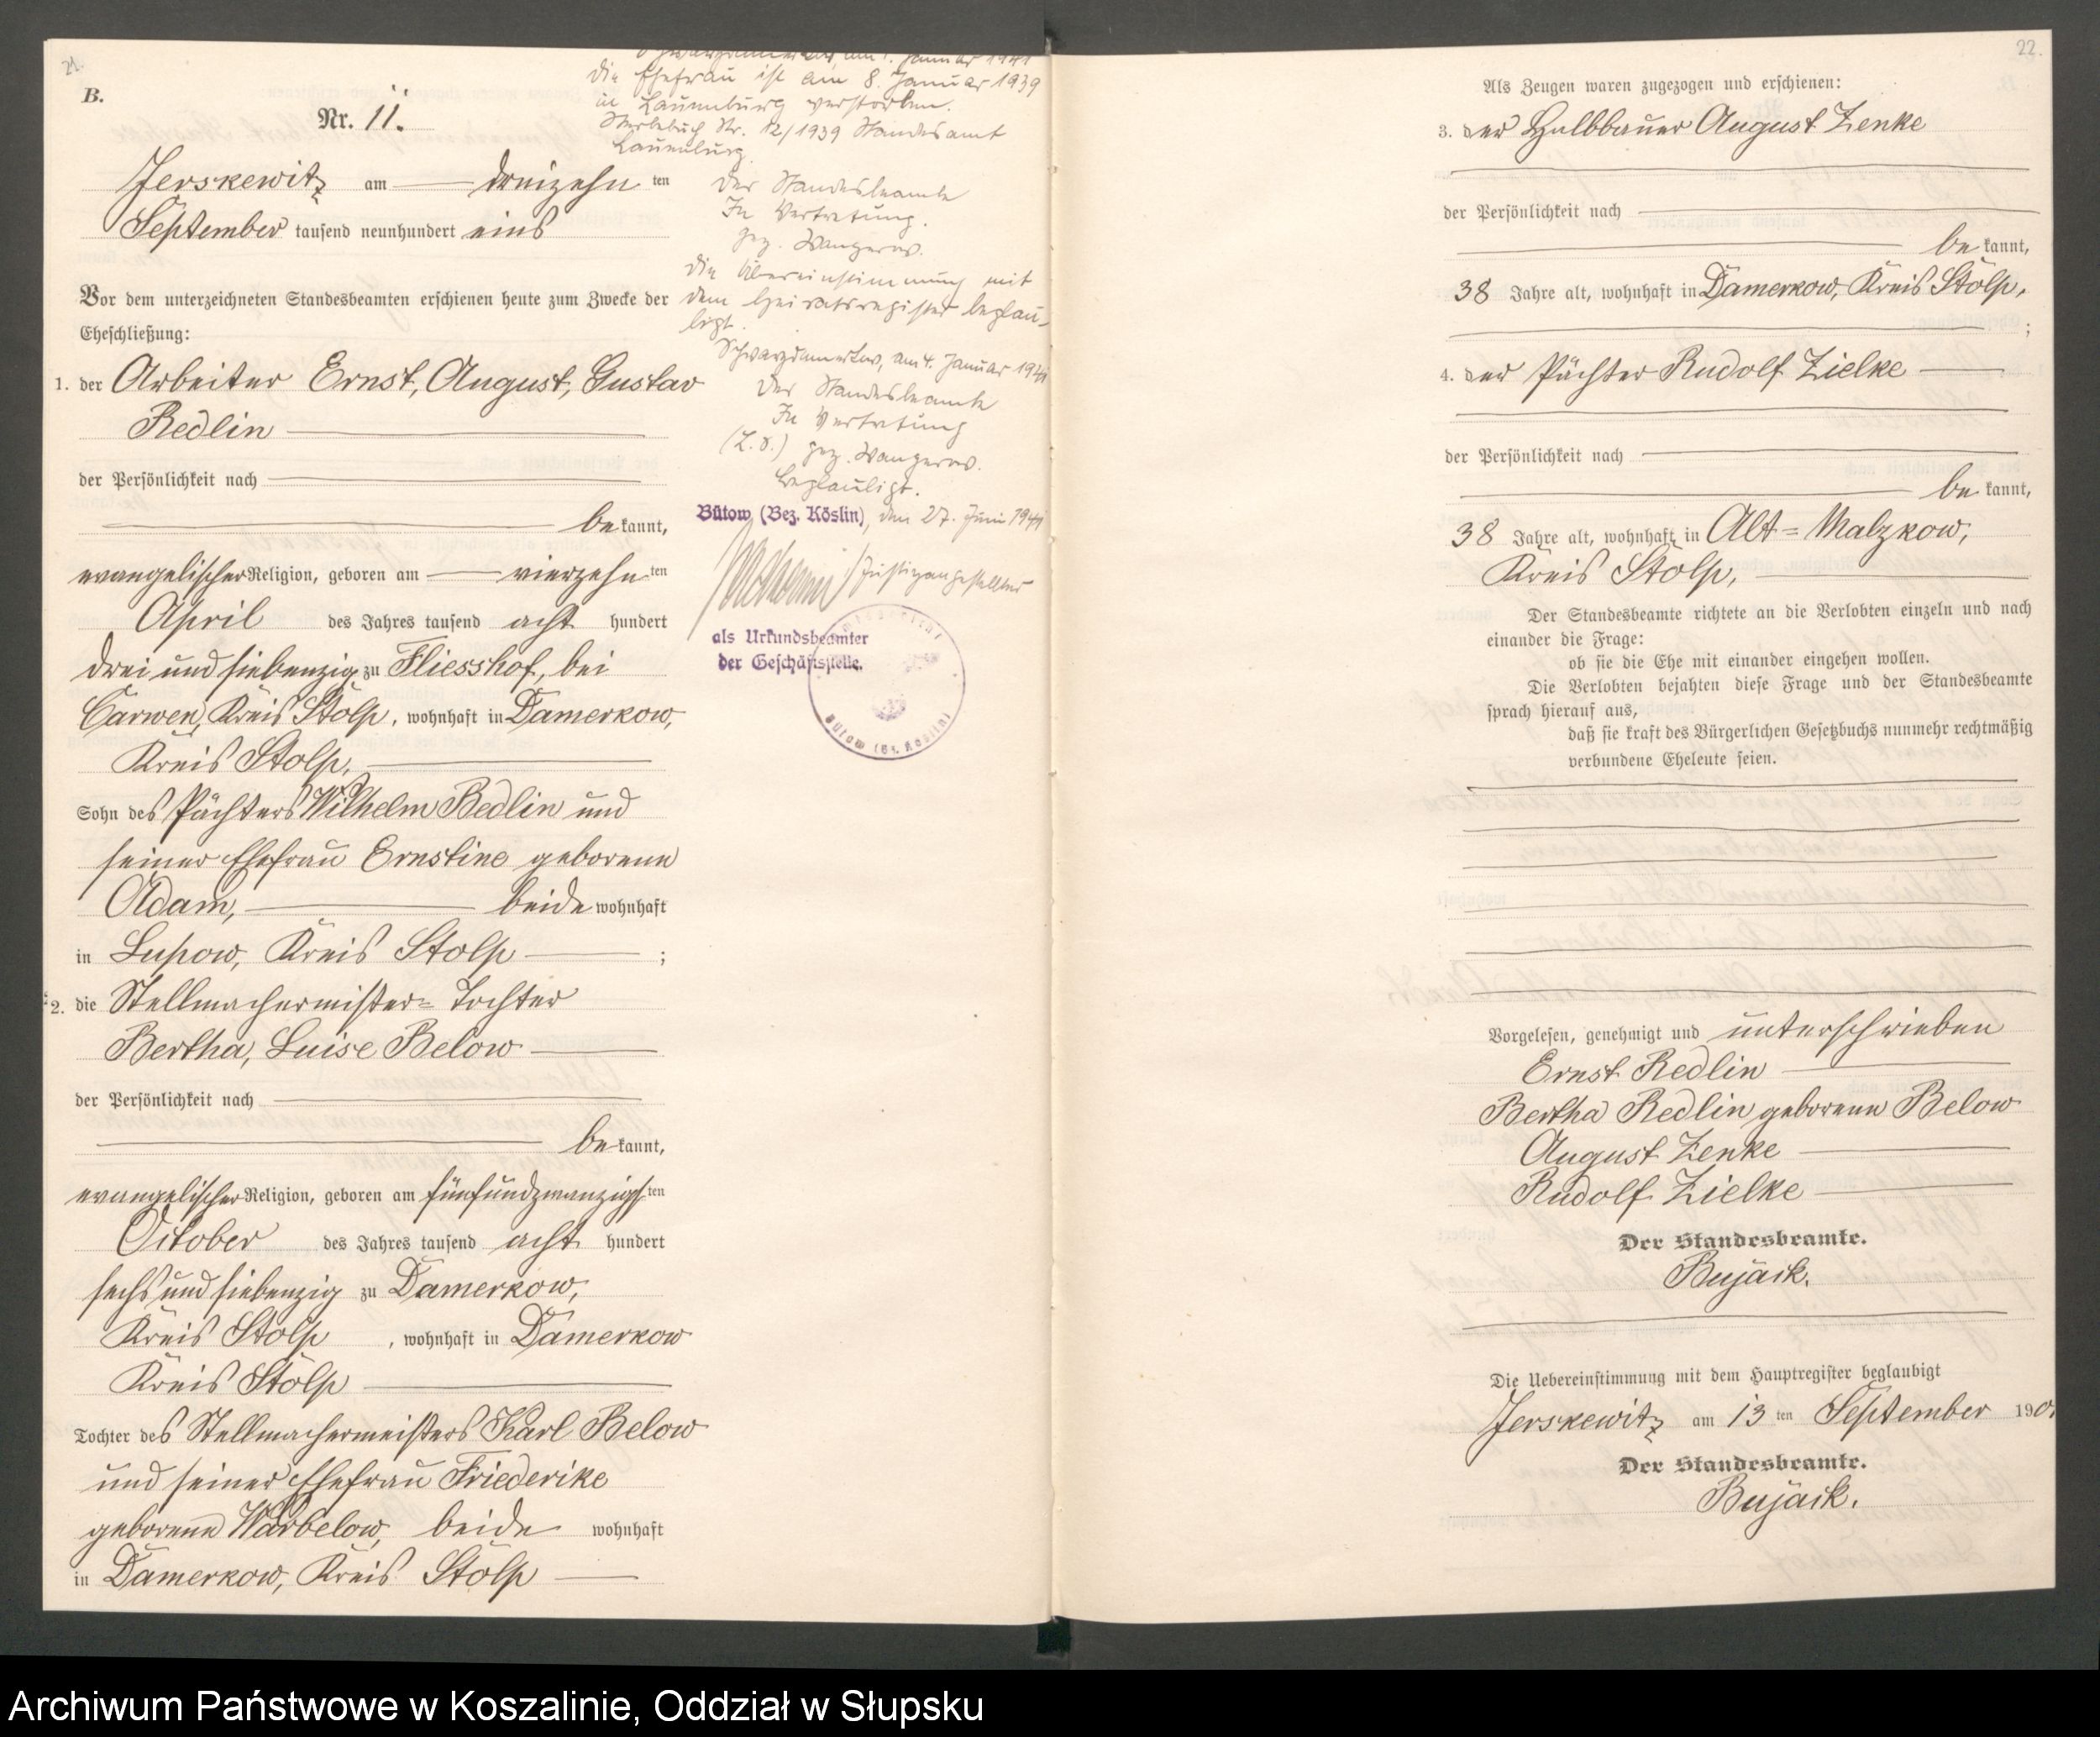 21.
B.
Nr. 11.
Jerskewitz am dreizehn ten
September tausend neunhundert eins
Vor dem unterzeichneten Standesbeamten erschienen heute zum Zwecke der
Eheschließung:
1. der Arbeiter Ernst, August, Gustav
Redlin
der Persönlichkeit nach
be kannt,
evangelischer Religion, geboren am vierzehn ten
April des Jahres tausend acht hundert
drei und siebenzig zu Fliesshof, bei
Carwen, Kreis Stolp, wohnhaft in Damerkow,
Kreis Stolp,
Sohn des Pächters Wilhelm Redlin und
seiner Ehefrau Ernstine geborene
Adam, beide wohnhaft
in Lupow, Kreis Stolp ;
2. die Stellmachermister-Tochter
Bertha, Luise Below
der Persönlichkeit nach
be kannt,
evangelischer Religion, geboren am fünfundzwanzigsten
October des Jahres tausend acht hundert
sechs und siebenzig zu Damerkow,
Kreis Stolp , wohnhaft in Damerkow
Kreis Stolp
Tochter des Stellmachermeisters Karl Below
und seiner Ehefrau Friederike
geborene Warbelow, beide wohnhaft
in Damerkow, Kreis Stolp
am 4. Januar 1941
Die Ehefrau ist am 8. Januar 1939
in Lauenburg verstorben.
Sterbebuch Nr. 12/1939 Standesamt
Lauenburg.
Der Standesbeamte
In Vertretung.
gez. Wangerow.
Die Übereinstimmung mit
dem Heiratsregister beglau-
bigt.
Schwarzdamerkow, am 4. Januar 1941
Der Standesbeamte
In Vertretung
(L.S.) gez. Wangerow.
Beglaubigt.
Bütow (Bez. Köslin), den 27. Juni 1941
Justizangestellter
als Urkundsbeamter
der Geschäftsstelle.
Bütow (Bz. Köslin)
22.
Als Zeugen waren zugezogen und erschienen:
3. der Halbbauer August Zenke
der Persönlichkeit nach
be kannt,
38 Jahre alt, wohnhaft in Damerkow, Kreis Stolp,
;
4. der Pächter Rudolf Zielke
der Persönlichkeit nach
be kannt,
38 Jahre alt, wohnhaft in Alt-Malzkow,
Kreis Stolp,
Der Standesbeamte richtete an die Verlobten einzeln und nach
einander die Frage:
ob sie die Ehe mit einander eingehen wollen.
Die Verlobten bejahten diese Frage und der Standesbeamte
sprach hierauf aus,
daß sie kraft des Bürgerlichen Gesetzbuchs nunmehr rechtmäßig
verbundene Eheleute seien.
Vorgelesen, genehmigt und unterschrieben
Ernst Redlin
Bertha Redlin geborene Below
August Zenke
Rudolf Zielke
Der Standesbeamte.
Bujack.
Die Uebereinstimmung mit dem Hauptregister beglaubigt
Jerskewitz am 13 ten September 1901
Der Standesbeamte.
Bujack.
Archiwum Państwowe w Koszalinie, Oddział w Słupsku